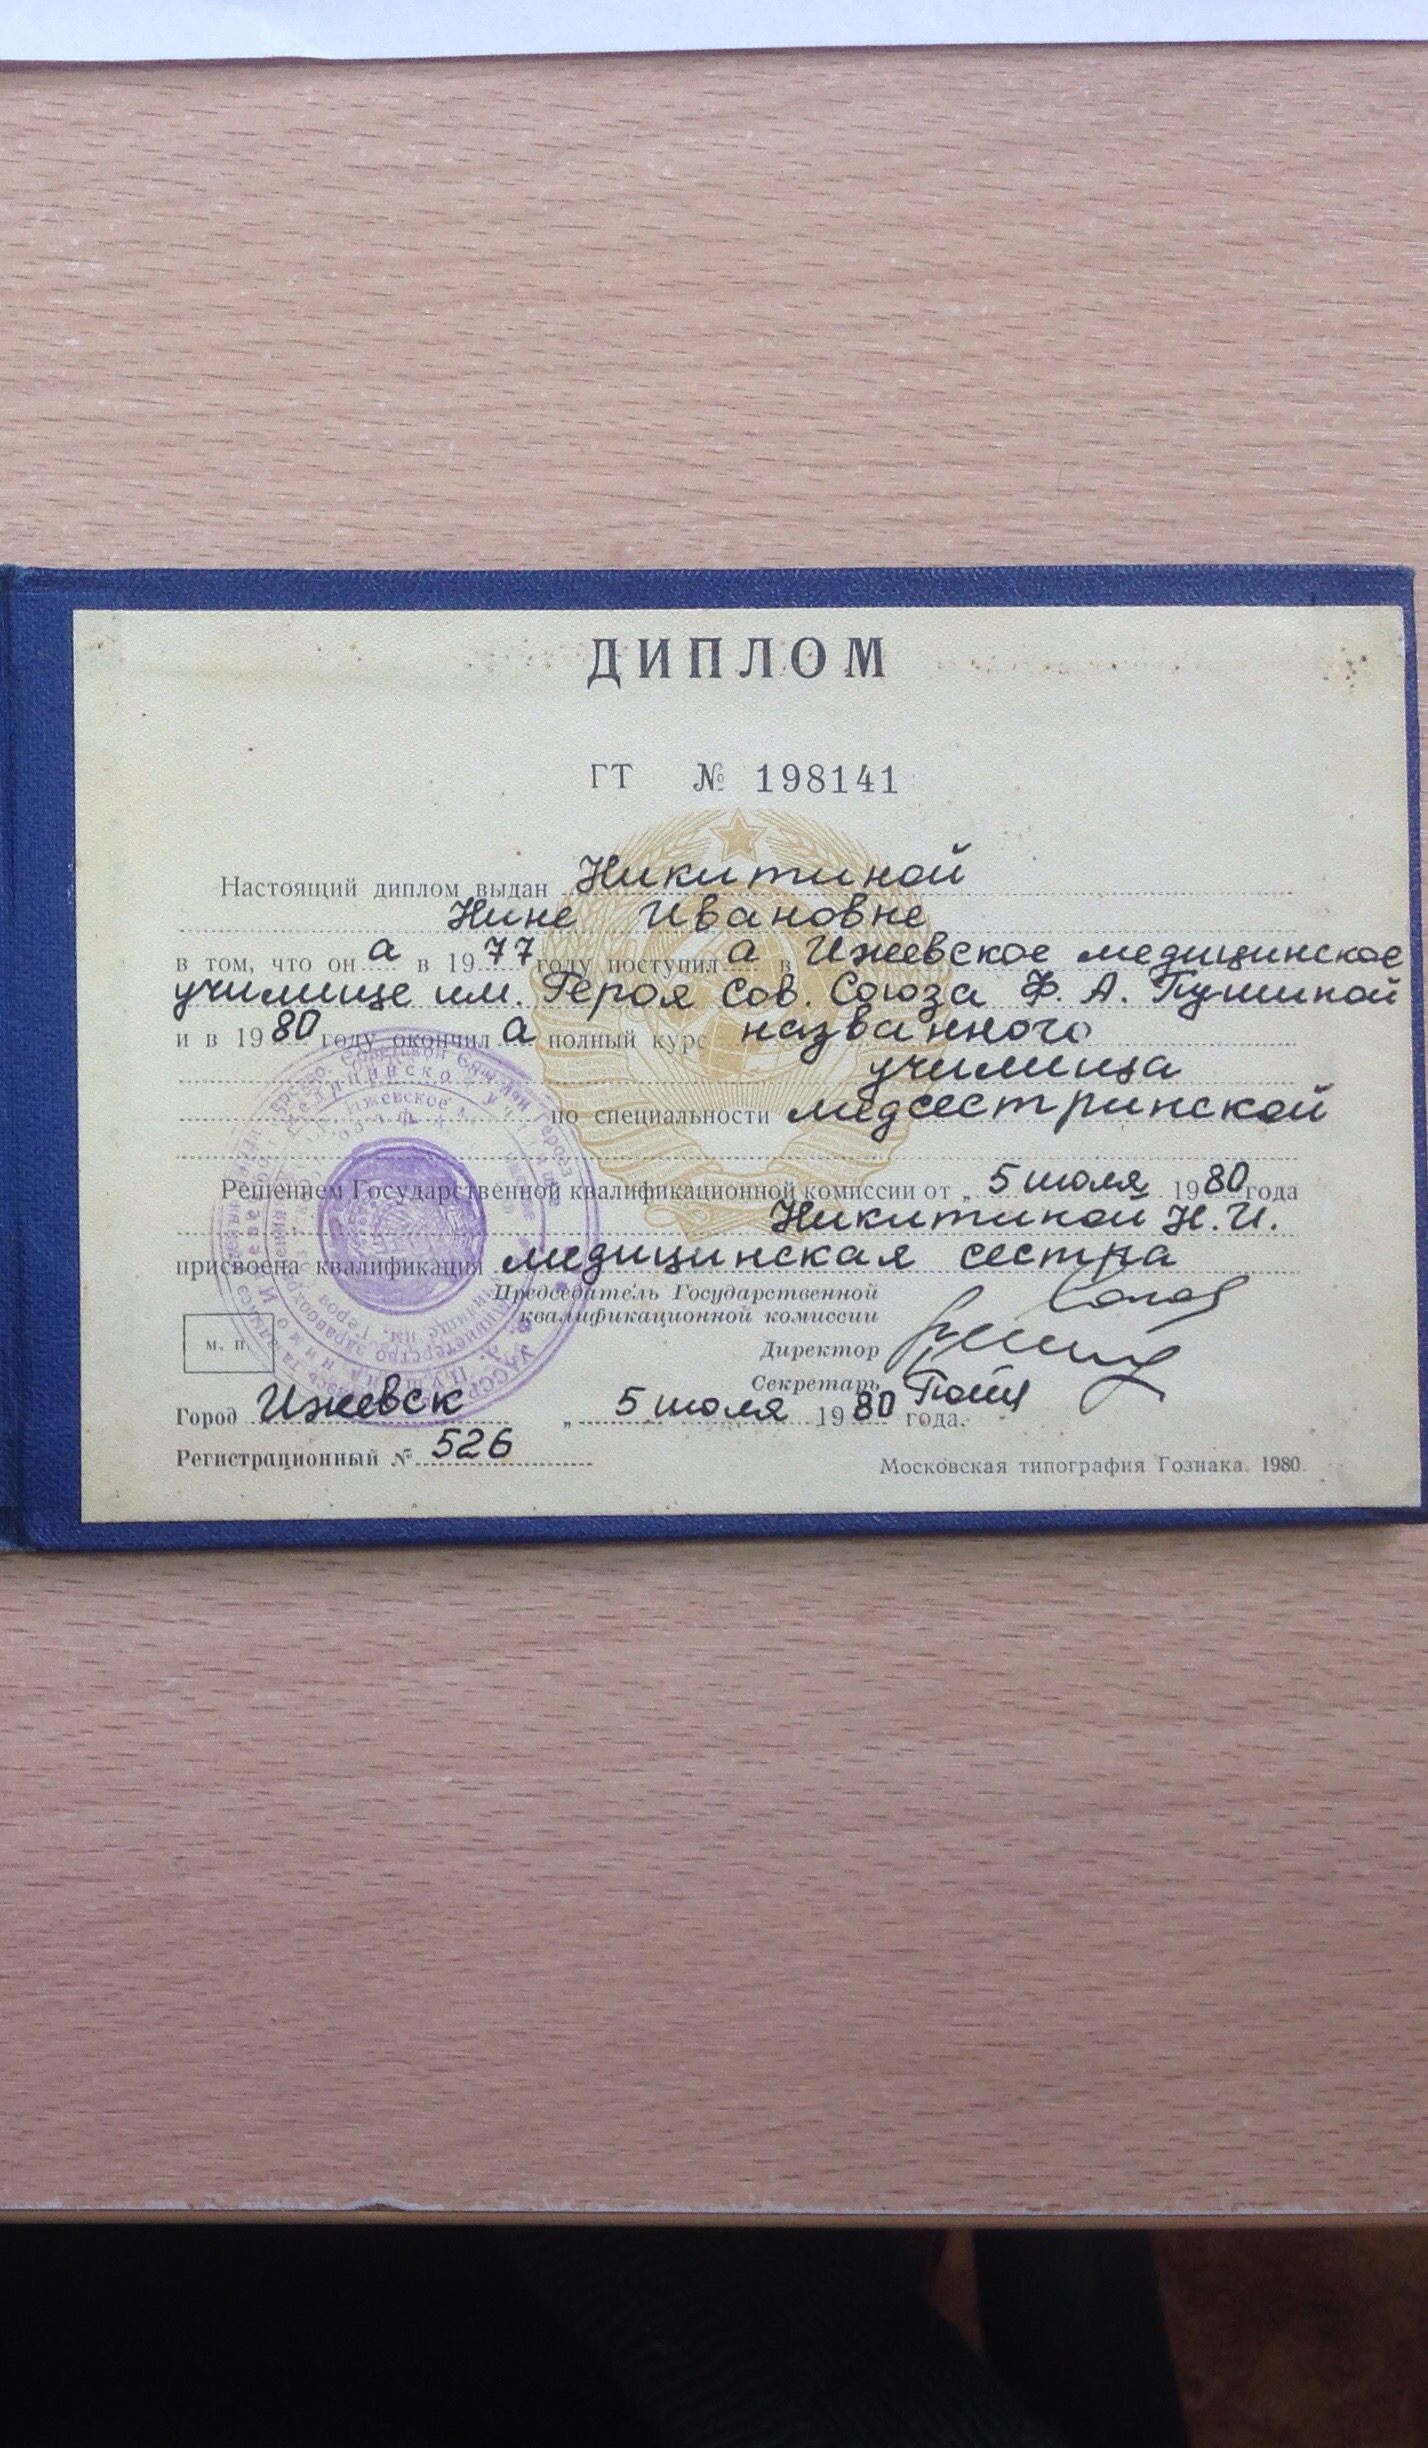 ДИПЛОМ
ГТ № 198141
Настоящий диплом выдан Никитиной
Нине Ивановне
в том, что он а в 1977 году поступил а в Ижевское медицинское
училище им. Героя Сов. Союза Ф. А. Пушиной
и в 1980 году окончил а полный курс названного
училища
по специальности медсестринской
Решением Государственной квалификационной комиссии от „ 5 июля 1980 года
Никитиной Н. И.
присвоена квалификация медицинская сестра
Председатель Государственной
квалификационной комиссии
Директор
Секретарь
м. п.
Город Ижевск „ 5 июля 1980 года.
Регистрационный № 526
Московская типография Гознака. 1980.